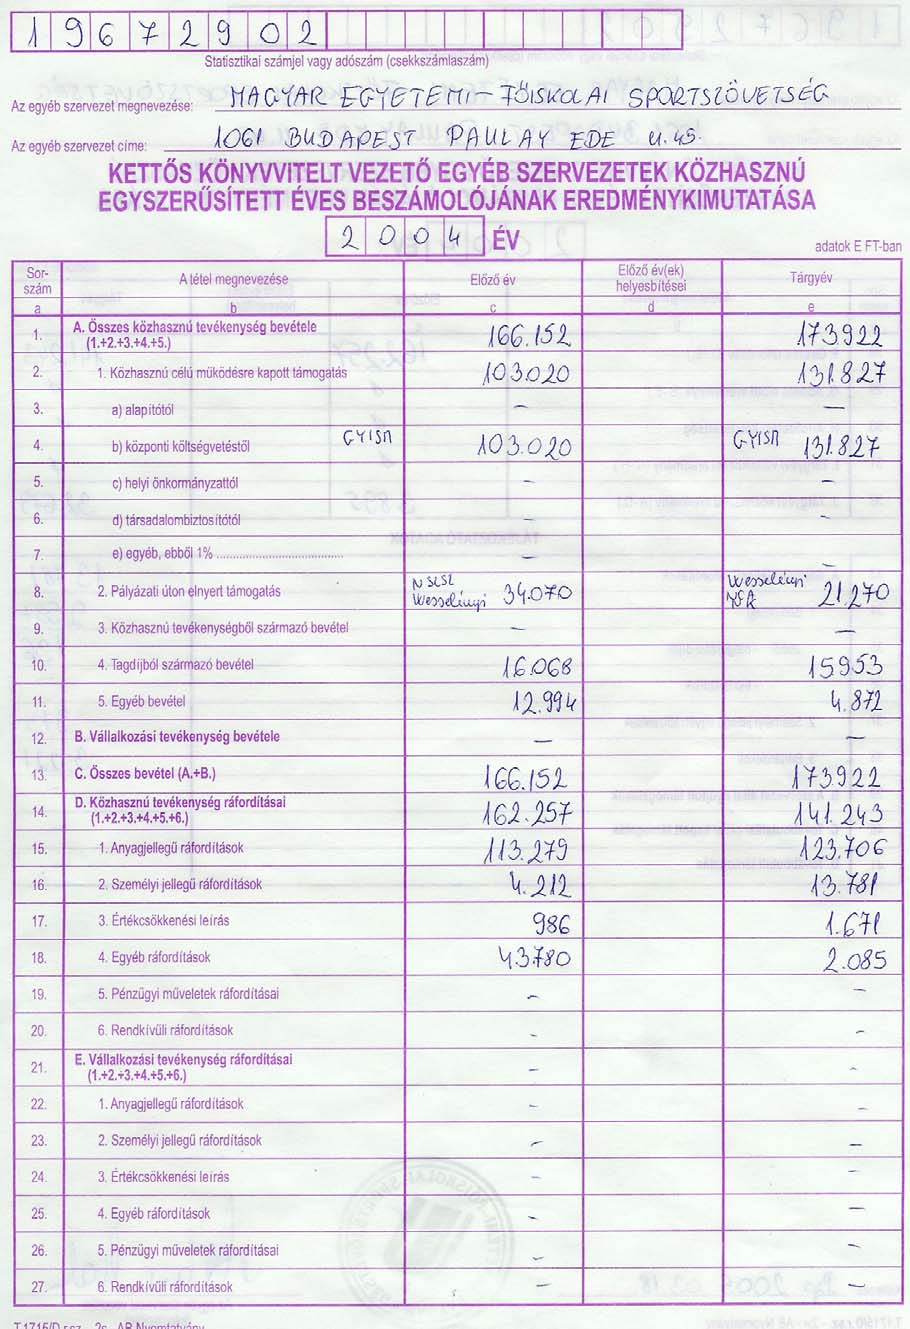 19672902
Statisztikai számjel vagy adószám (csekkszámlaszám)
Az egyéb szervezet megnevezése: MAGYAR EGYETEMI – FŐISKOLAI SPORTSZÖVETSÉG
Az egyéb szervezet címe: 1061 BUDAPEST PAULAY EDE u. 45.
KETTŐS KÖNYVVITELT VEZETŐ EGYÉB SZERVEZETEK KÖZHASZNÚ
EGYSZERŰSÍTETT ÉVES BESZÁMOLÓJÁNAK EREDMÉNYKIMUTATÁSA
2004 ÉV
adatok E FT-ban
Sor-szám A tétel megnevezése Előző év Előző év(ek) helyesbítései Tárgyév
a b c d e
1. A. Összes közhasznú tevékenység bevétele (1.+2.+3.+4.+5.) 166.152 173.922
2. 1. Közhasznú célú működésre kapott támogatás 103.020 131.827
3. a) alapítótól – –
4. b) központi költségvetéstől GYISM 103.020 GYISM 131.827
5. c) helyi önkormányzattól – –
6. d) társadalombiztosítótól – –
7. e) egyéb, ebből 1% ........................................ – –
8. 2. Pályázati úton elnyert támogatás Wesselényi 34.070 Wesselényi 21.270
9. 3. Közhasznú tevékenységből származó bevétel – –
10. 4. Tagdíjból származó bevétel 16.068 15.953
11. 5. Egyéb bevétel 12.994 4.872
12. B. Vállalkozási tevékenység bevétele – –
13. C. Összes bevétel (A.+B.) 166.152 173.922
14. D. Közhasznú tevékenység ráfordításai (1.+2.+3.+4.+5.+6.) 162.257 141.243
15. 1. Anyagjellegű ráfordítások 113.279 123.706
16. 2. Személyi jellegű ráfordítások 4.212 13.781
17. 3. Értékcsökkenési leírás 986 1.671
18. 4. Egyéb ráfordítások 43.780 2.085
19. 5. Pénzügyi műveletek ráfordításai – –
20. 6. Rendkívüli ráfordítások – –
21. E. Vállalkozási tevékenység ráfordításai (1.+2.+3.+4.+5.+6.) – –
22. 1. Anyagjellegű ráfordítások – –
23. 2. Személyi jellegű ráfordítások – –
24. 3. Értékcsökkenési leírás – –
25. 4. Egyéb ráfordítások – –
26. 5. Pénzügyi műveletek ráfordításai – –
27. 6. Rendkívüli ráfordítások – –